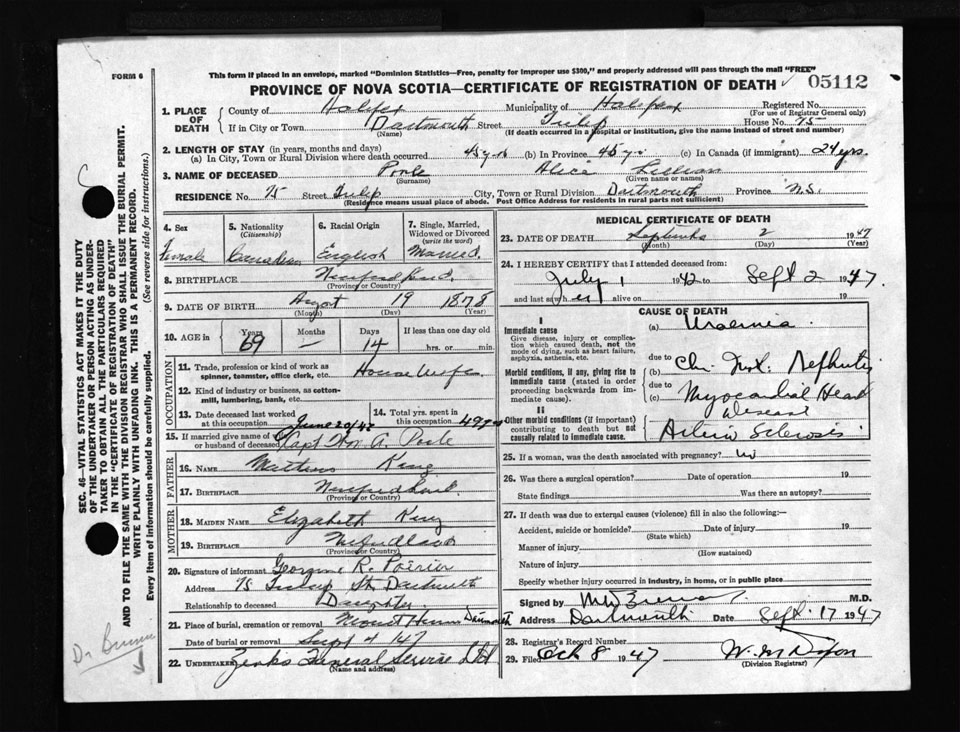 FORM 6
This form if placed in an envelope, marked "Dominion Statistics—Free, penalty for improper use $300," and properly addressed will pass through the mail "FREE"
PROVINCE OF NOVA SCOTIA—CERTIFICATE OF REGISTRATION OF DEATH
05112
1. PLACE OF DEATH
County of Halifax Municipality of Halifax Registered No.
(For use of Registrar General only)
If in City or Town Dartmouth Street Tulip House No. 75
(Name) (If death occurred in a hospital or institution, give the name instead of street and number)
2. LENGTH OF STAY (in years, months and days)
(a) In City, Town or Rural Division where death occurred 45 yrs (b) In Province 45 yrs (c) In Canada (if immigrant) 24 yrs.
3. NAME OF DECEASED Poole Alice Lillian
(Surname) (Given name or names)
RESIDENCE No. 75 Street Tulip City, Town or Rural Division Dartmouth Province N.S.
(Residence means usual place of abode. Post Office Address for residents in rural parts not sufficient)
4. Sex Female
5. Nationality (Citizenship) Canadian
6. Racial Origin English
7. Single, Married, Widowed or Divorced (write the word) Married.
8. BIRTHPLACE Newfoundland.
(Province or Country)
9. DATE OF BIRTH August 19 1878
(Month) (Day) (Year)
10. AGE in Years 69 Months — Days 14 If less than one day old
hrs. or min.
OCCUPATION
11. Trade, profession or kind of work as spinner, teamster, office clerk, etc. House Wife
12. Kind of industry or business, as cotton-mill, lumbering, bank, etc.
13. Date deceased last worked at this occupation June 20/42
14. Total yrs. spent in this occupation 49 yrs
15. If married give name of wife or husband of deceased Capt A. Poole
FATHER
16. NAME King
17. BIRTHPLACE Newfoundland.
(Province or Country)
MOTHER
18. MAIDEN NAME Elizabeth King
19. BIRTHPLACE Newfoundland
(Province or Country)
20. Signature of informant R. Poirier
Address 75 Tulip St. Dartmouth
Relationship to deceased Daughter
21. Place of burial, cremation or removal Mount Dartmouth
Date of burial or removal Sept 4 147
22. UNDERTAKER Funeral Service Ltd
(Name and address)
MEDICAL CERTIFICATE OF DEATH
23. DATE OF DEATH September 2 1947
(Month) (Day) (Year)
24. I HEREBY CERTIFY that I attended deceased from:
July 1 1942 to Sept 2 1947
and last saw h er alive on 19
CAUSE OF DEATH
I
Immediate cause
Give disease, injury or complication which caused death, not the mode of dying, such as heart failure, asphyxia, asthenia, etc.
(a) Uraemia.
due to
Morbid conditions, if any, giving rise to immediate cause (stated in order proceeding backwards from immediate cause).
(b) Chr. Nephritis
due to
(c) Myocardial Heart Disease
II
Other morbid conditions (if important) contributing to death but not causally related to immediate cause.
Arterio Sclerosis
25. If a woman, was the death associated with pregnancy? no
26. Was there a surgical operation? Date of operation 19
State findings Was there an autopsy?
27. If death was due to external causes (violence) fill in also the following:—
Accident, suicide or homicide? Date of injury 19
(State which)
Manner of injury
(How sustained)
Nature of injury
Specify whether injury occurred in industry, in home, or in public place
Signed by M.D.
Address Dartmouth Date Sept. 17 1947
28. Registrar's Record Number
29. Filed Oct 8 1947 Dixon
(Division Registrar)
SEC. 46—VITAL STATISTICS ACT MAKES IT THE DUTY
OF THE UNDERTAKER OR PERSON ACTING AS UNDER-
TAKER TO OBTAIN ALL THE PARTICULARS REQUIRED
IN THE "CERTIFICATE OF REGISTRATION OF DEATH"
AND TO FILE THE SAME WITH THE DIVISION REGISTRAR WHO SHALL ISSUE THE BURIAL PERMIT.
WRITE PLAINLY WITH UNFADING INK. THIS IS A PERMANENT RECORD.
Every item of information should be carefully supplied. (See reverse side for instructions.)
Dr